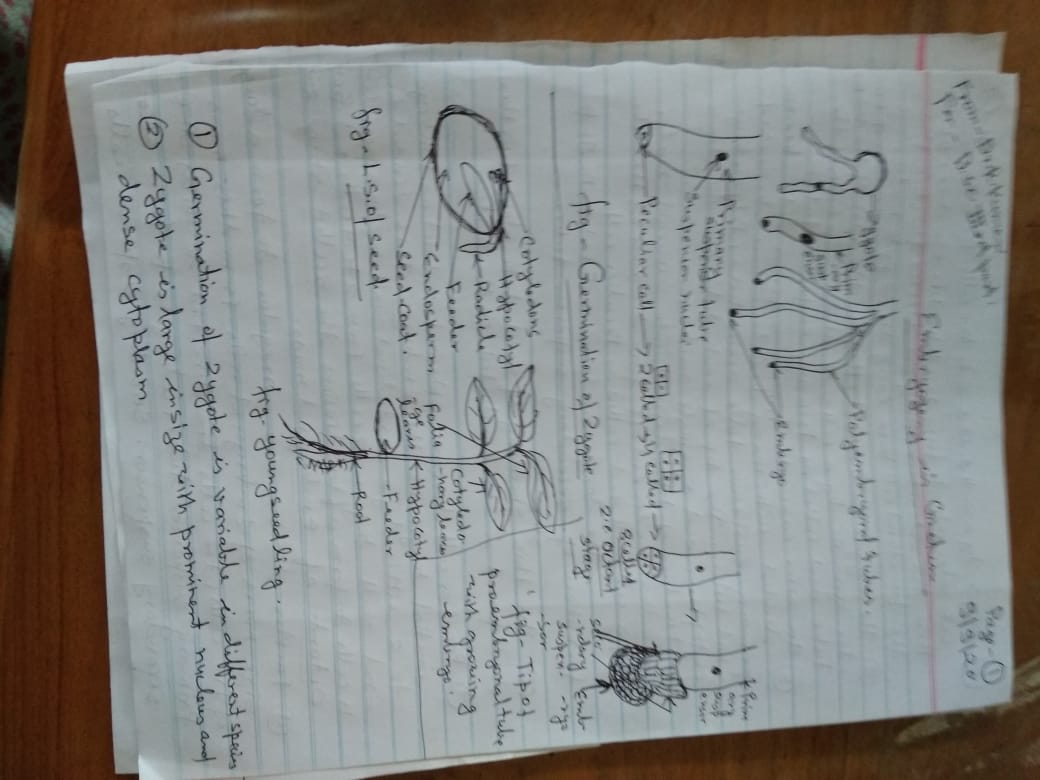 Page-①
9/9/20
For-
Embryogeny in Gnetum
Zygote
Polyembryonal tubes.
embryo
Primary
suspensor tube
suspensor nuclei
Peculiar cell → 2 celled → 4 celled →
8 celled
i.e Octant
stage
Prim
ary
susp
ensor
Seco
-ndary
suspen.
-sor
Emb-
-ryo
fig - Germination of Zygote
fig - Tip of
proembryonal tube
with growing
embryo.
Cotyledons
Hypocotyl
Radicle
Feeder
Endosperm
Seed coat.
fig - L.S. of seed
Folia
-ge
leaves
Cotyledo-
-nary leaves
Hypocotyl
Feeder
Root
fig- young seedling.
① Germination of zygote is variable in different species
② Zygote is large in size with prominent nucleus and
dense cytoplasm